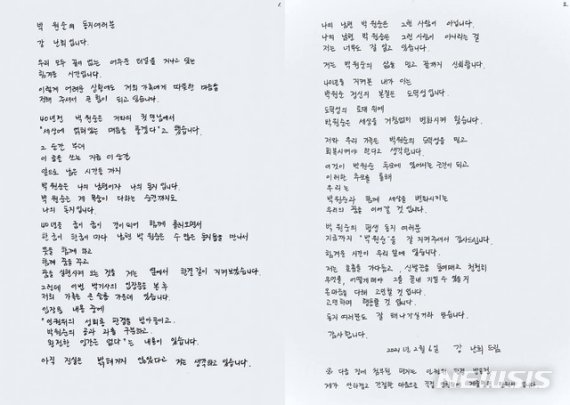 1.
박 원순의 동지여러분
강 난희 입니다.
우리 모두 끝이 없는 어두운 터널을 지나고 있는
힘겨운 시간입니다.
이렇게 어려운 상황에도 저희 가족에게 따뜻한 마음을
전해 주셔서 큰 힘이 되고 있습니다.
40년전 박 원순은 저와의 첫 만남에서
"세상에 얽혀있는 매듭을 풀겠다"고 했습니다.
그 순간 부터
이 글을 쓰는 지금 이 순간
앞으로 남은 시간들 까지
박 원순은 나의 남편이자 나의 동지 입니다.
박 원순 제 목숨이 다하는 순간까지도
나의 동지입니다.
40년을 굽이 굽이 같이 함께 흘러오면서
남편 박 원순은 수 많은 동지들을 만나서
뜻을 함께 하고
함께 꿈을 꾸고
꿈을 실현시켜 오는 것을 저는 옆에서 한결같이 지켜보았습니다.
그런데 이번 박기사의 입장문을 본 후
저희 가족은 큰 슬픔 가운데 있습니다.
입장문 내용 중에
"인권위의 성희롱 판결을 받아들이고,
박원순의 공과 과를 구분하고,
완전한 인간은 없다"는 내용이 있습니다.
아직 진실은 밝혀지지 않았다고 저는 생각하고 있습니다.
2.
나의 남편 박 원순은 그런 사람이 아닙니다.
나의 남편 박 원순은 그런 사람이 아니라는 걸
저는 너무도 잘 알고 있습니다.
저는 박원순의 삶을 믿고 끝까지 신뢰합니다.
40년을 지켜본 내가 아는
박원순 정신의 본질은 도덕성 입니다.
도덕성의 토대 위에
박원순은 세상을 거침없이 변화시켜 왔습니다.
저와 우리 가족은 박원순의 도덕성을 믿고
회복시켜야 한다고 생각합니다.
이것이 박원순 추모에 있어서는 조건이 되고
이러한 추모를 통해
우리는
박원순과 함께 세상을 변화시키는
우리의 꿈을 이어갈 것 입니다.
박 원순의 평생 동지 여러분
지금까지 "박 원순"을 잘 지켜주셔서 감사드립니다.
힘겨운 시간이 우리 앞에 있습니다.
저는 호흡을 가다듬고, 신발끈을 동여매고 천천히
무엇을, 어떻게 해야 그를 지킬 수 있을지
고민할 것 입니다.
고민하며 행동할 것 입니다.
동지 여러분도 잘 해 나가실거라 믿습니다.
감사합니다.
2021년 2월 6일 강 난희 드림
NEWSIS